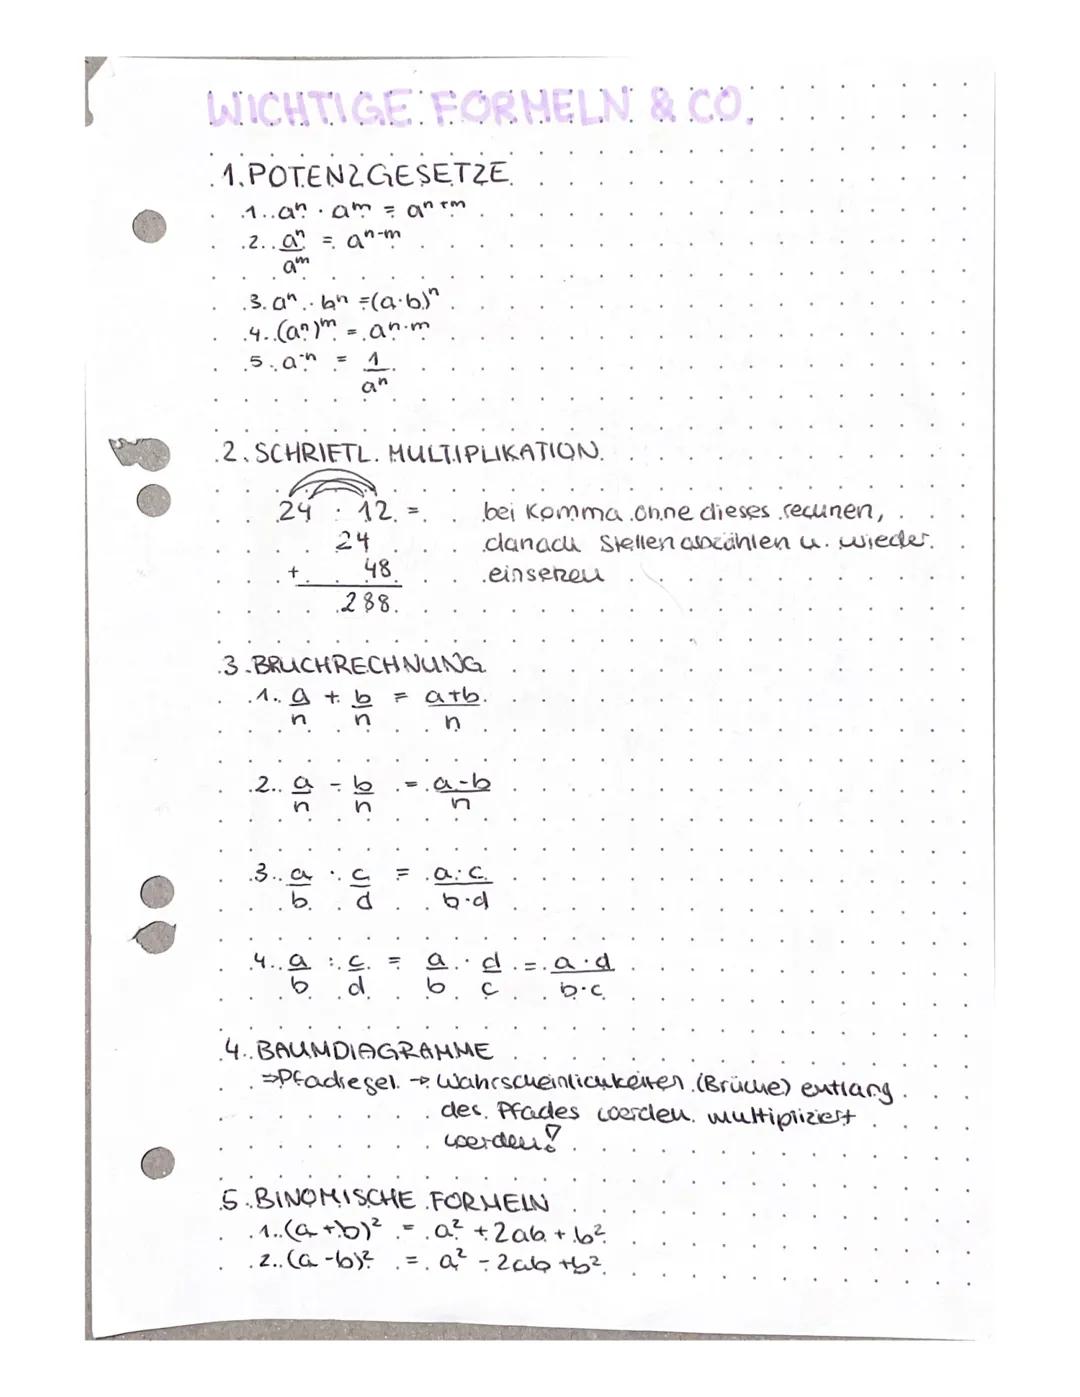 WICHTIGE FORMELN & CO.
1. POTENZGESETZE
1. aⁿ · aᵐ = aⁿ⁺ᵐ
2. aⁿ/aᵐ = aⁿ⁻ᵐ
3. aⁿ · bⁿ = (a·b)ⁿ
4. (aⁿ)ᵐ = aⁿ·ᵐ
5. a⁻ⁿ = 1/aⁿ
2. SCHRIFTL. MULTIPLIKATION
24 · 12 = bei Komma ohne dieses rechnen,
24 danach Stellen abzählen u. wieder
+ 48 einsetzen
288
3. BRUCHRECHNUNG
1. a/n + b/n = a+b/n
2. a/n - b/n = a-b/n
3. a/b · c/d = a·c/b·d
4. a/b : c/d = a/b · d/c = a·d/b·c
4. BAUMDIAGRAMME
⇒Pfadregel → Wahrscheinlichkeiten (Brüche) entlang
des Pfades werden multipliziert
werden!
5. BINOMISCHE FORMELN
1. (a+b)² = a² + 2ab + b²
2. (a-b)² = a² - 2ab + b²